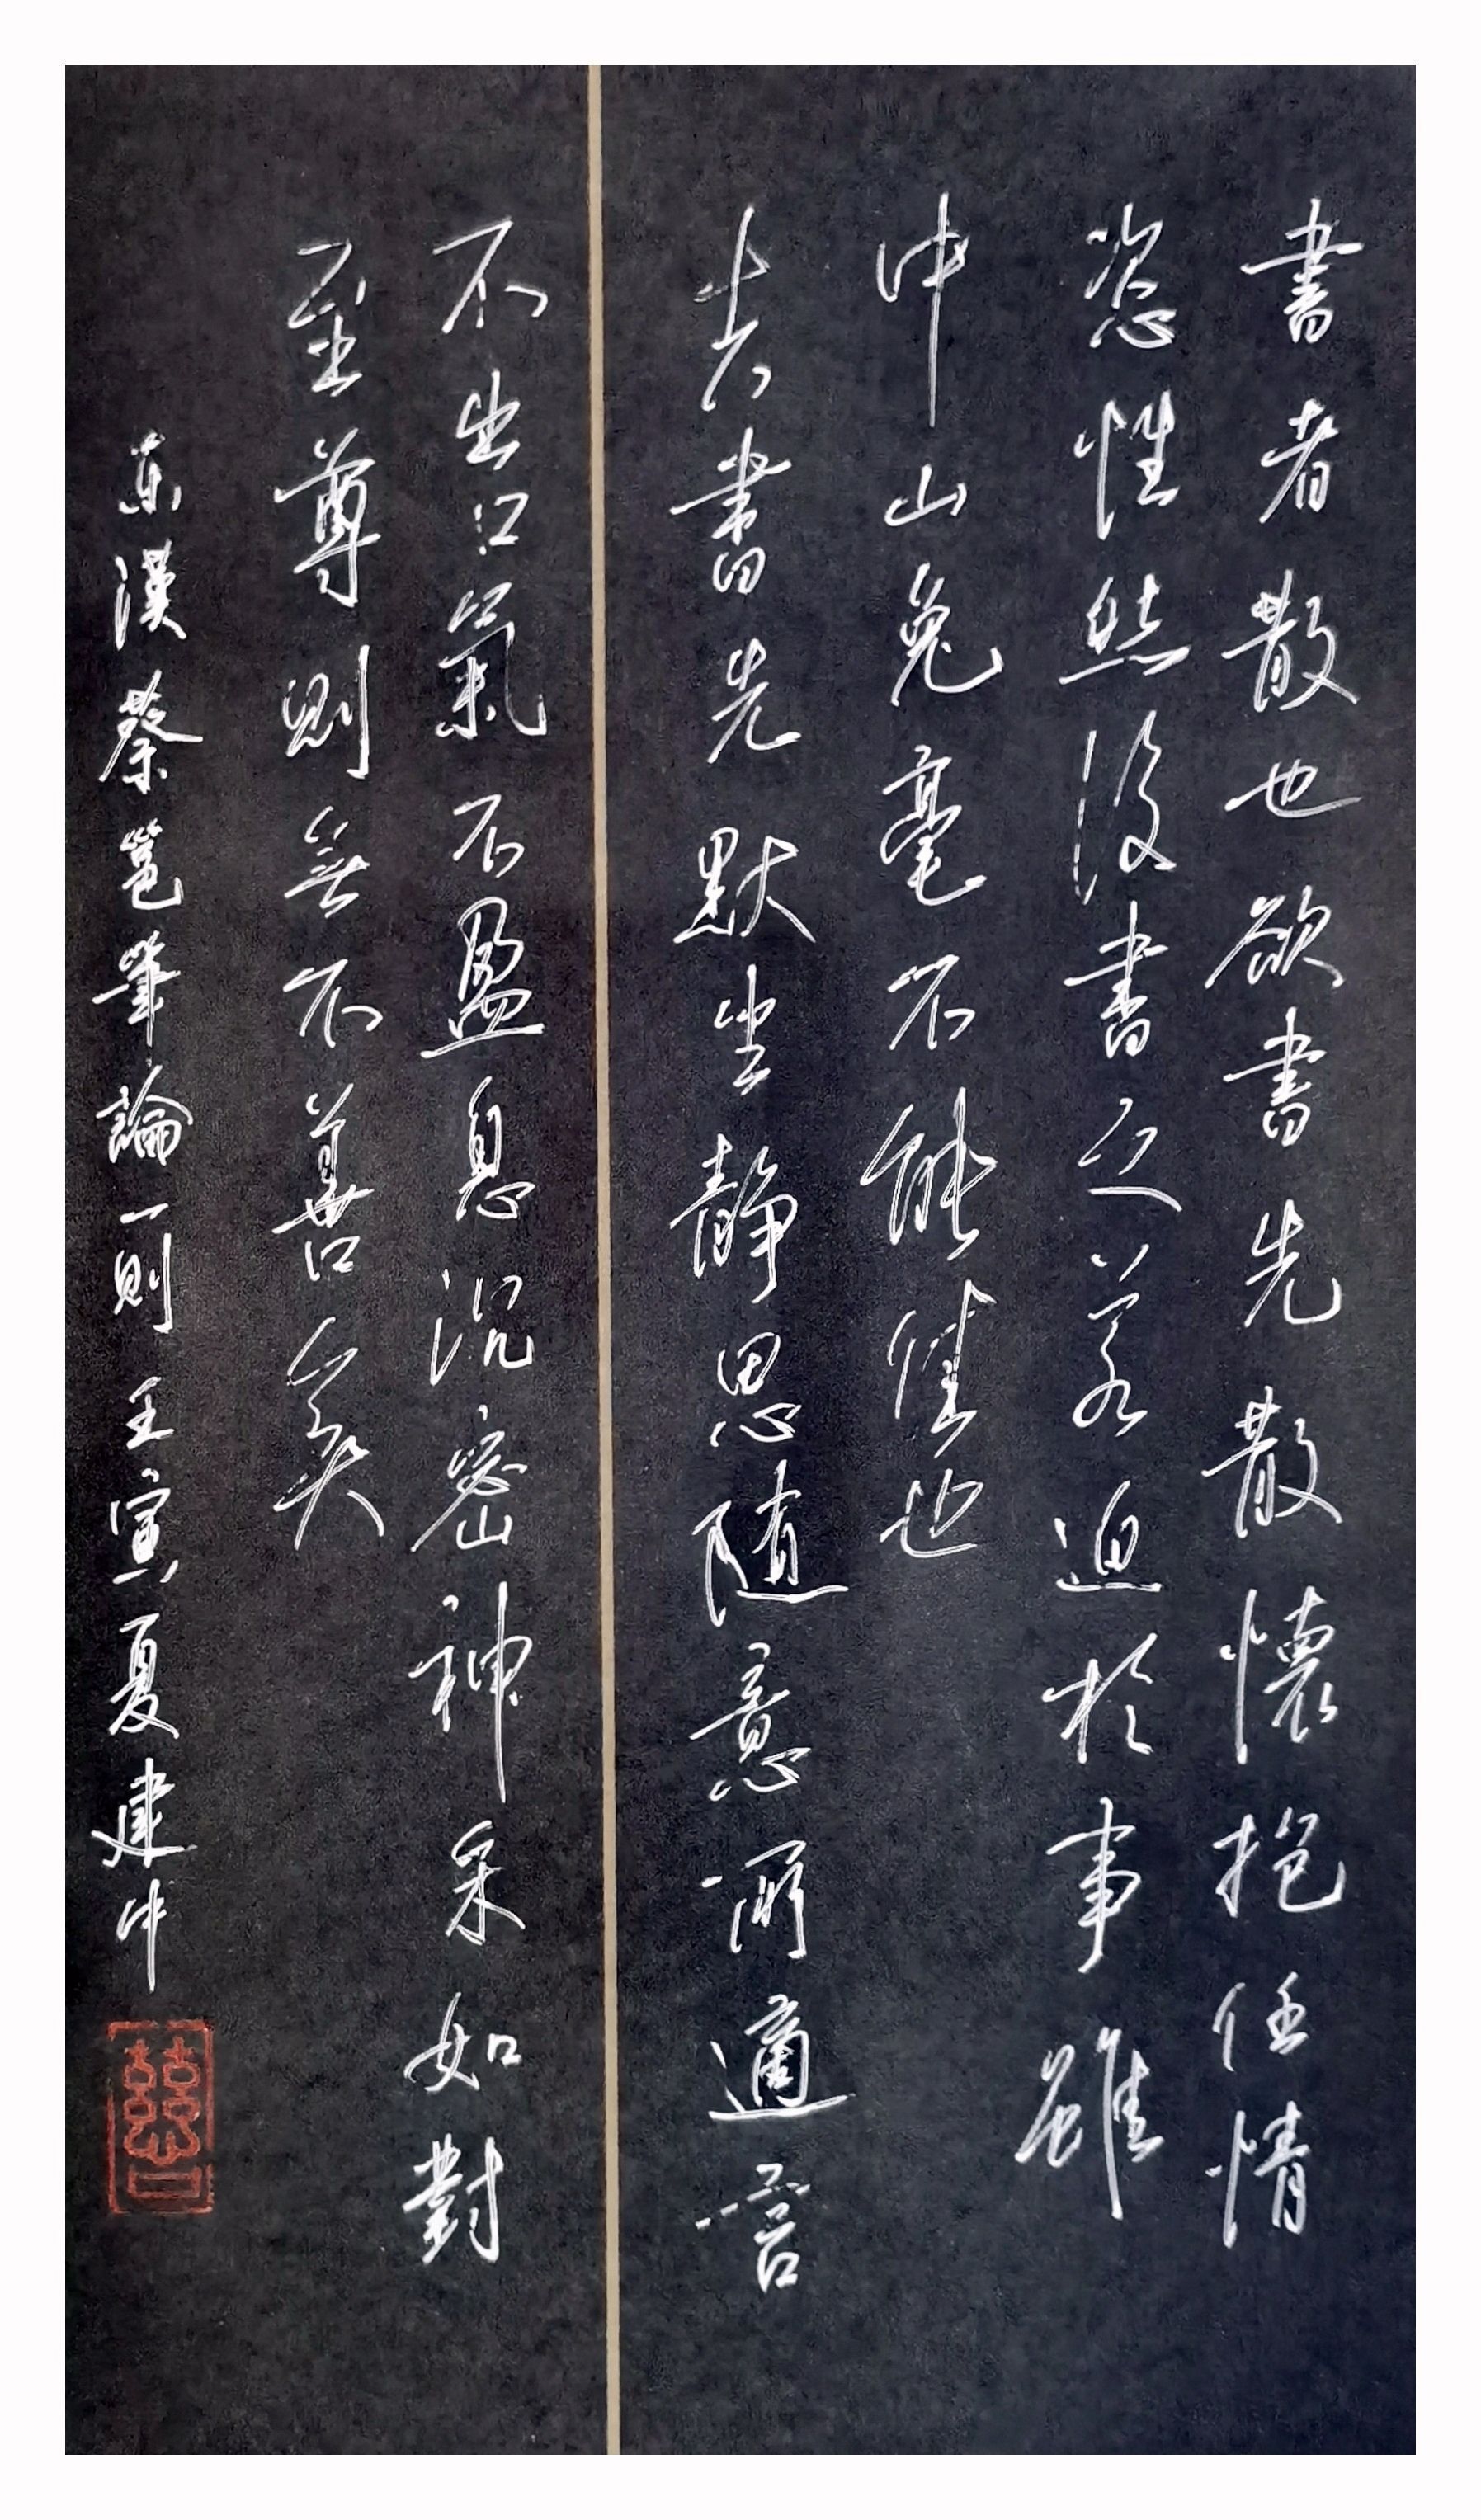 書者散也欲書先散懷抱任情
恣性然後書之若迫於事雖
中山兔毫不能佳也
夫書先默坐静思随意所適言
不出口氣不盈息沉密神采如對
至尊則無不善矣
東漢蔡邕筆論一則 壬寅夏建中